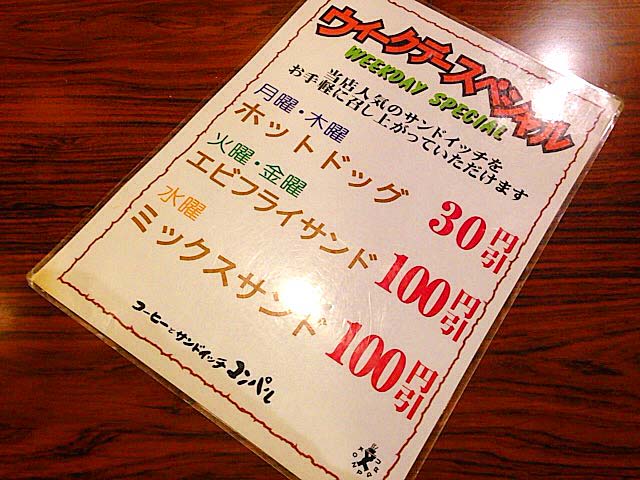 ウイークデースペシャル
WEEKDAY SPECIAL
当店人気のサンドイッチを
お手軽に召し上がっていただけます
月曜・木曜
ホットドッグ 30円引
火曜・金曜
エビフライサンド 100円引
水曜
ミックスサンド 100円引
コーヒーとサンドイッチ コンパル
KONPARU